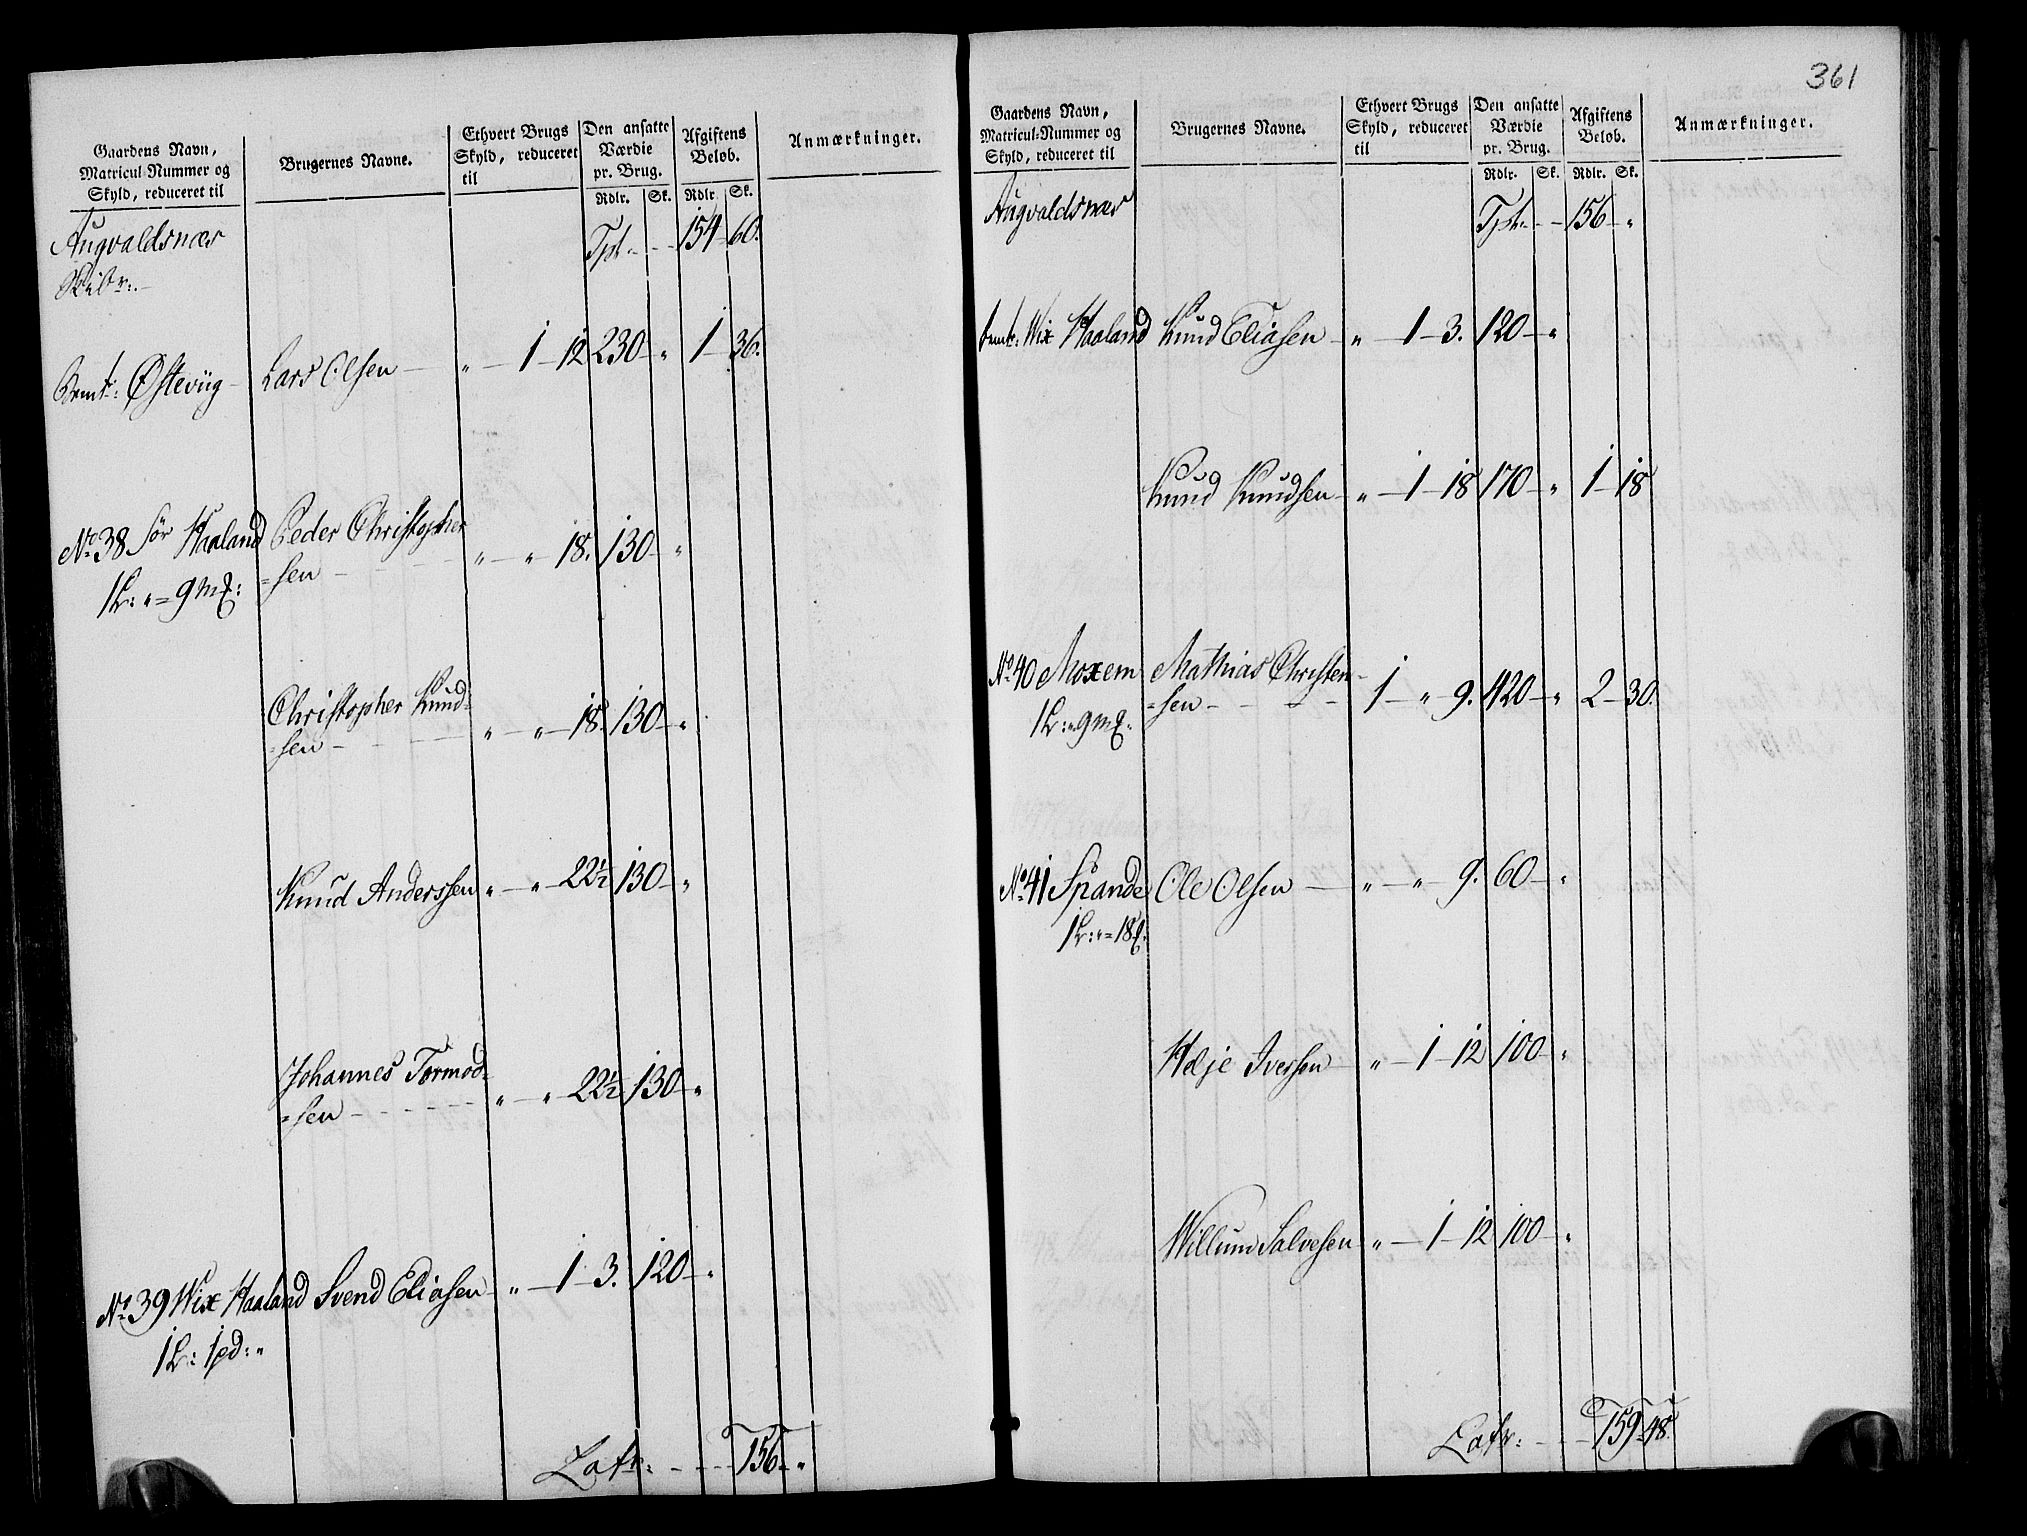 Gaardens Navn,
Matricul-Nummer og
Skyld, reduceret til
Brugernes Navne.
Ethvert Brugs
Skyld, reduceret
til
Den ansatte
Værdie
pr. Brug.
Rdlr. Sk.
Afgiftens
Beløb.
Rdlr Sk.
Anmærkninger.
Augvaldsnæs
Skibr:
Tpt: 154 60.
Bemt: Østeviig Lars Olsen " 1 12 230 " 1 36.
No 38 Sör Haaland Peder Christopher
=sen " " 18. 130 "
1 L: " = 9 mk:
Christopher Knud=
=sen " " 18. 130 "
Knud Anderssen " " 22½ 130 "
Johannes Tormod=
=sen " " 22½ 130 "
No 39 Wix Haaland Svend Eliasen " 1 3. 120 "
1 L: 1 pd: "
Latr: 156 "
361
Gaardens Navn,
Matricul-Nummer og
Skyld, reduceret til
Brugernes Navne.
Ethvert Brugs
Skyld, reduceret
til
Den ansatte
Værdie
pr. Brug.
Rdlr. Sk.
Afgiftens
Beløb.
Rdlr. Sk.
Anmærkninger.
Augvaldsnæs Tpt: 156 "
bemt: Wix Haaland Knud Eliasen " 1 3. 120 "
Knud Knudsen " 1 18 170 " 1 18
No 40 Moxem Mathias Christen=
=sen 1 " 9. 420 " 2 30.
1 L: " 9 mk.
No 41 Spande Ole Olsen " " 9. 60 "
1 L: " = 18
Helje Iversen " 1 12 100 "
Willum Salvesen " 1 12 100 "
Latr: 159 48.